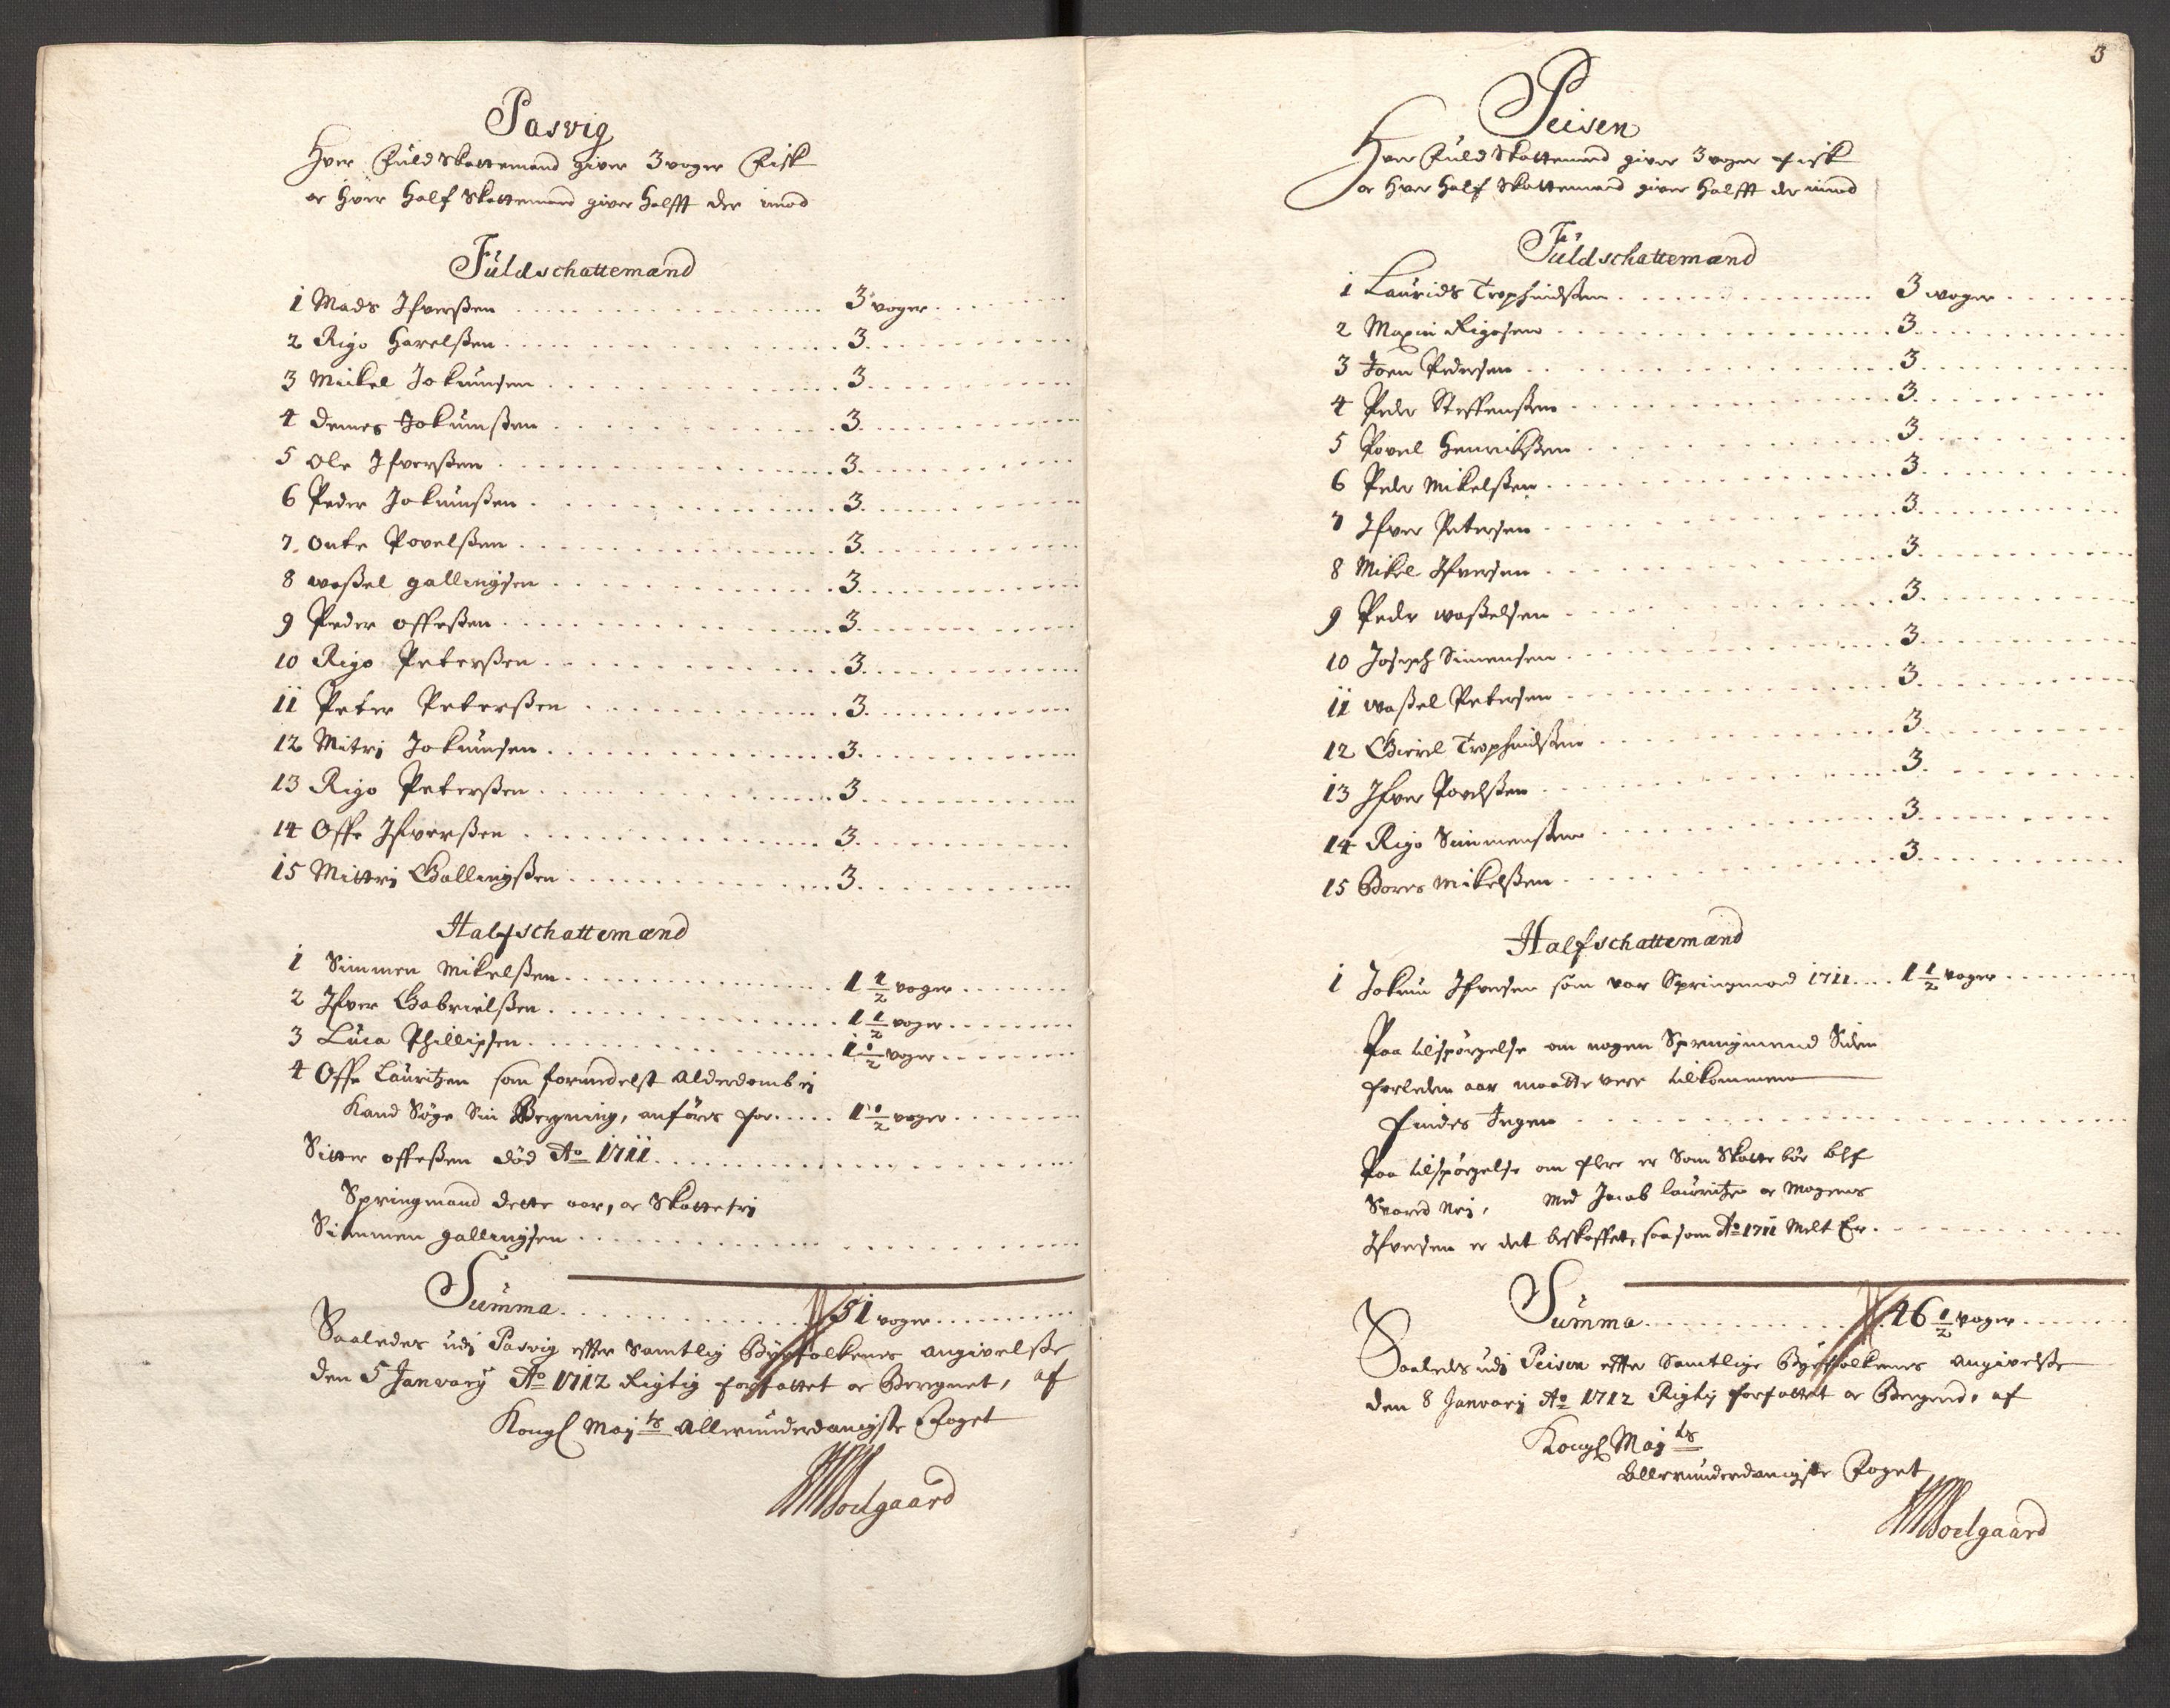 Pasvig
Hver Fuld Skattemand giver 3 voger Fisk
oc hver Half Skattemand giver halfft der imod
Füldschattemænd
1 Mads Ifverßen 3 voger
2 Rigo Havelßen 3
3 Mickel Jokumsen 3
4 Demes Jokumßen 3
5 Ole Ifverßen 3
6 Peder Jokumßen 3
7 Onke Povelßen 3
8 Waßel Gallingsen 3
9 Peder Offeßen 3
10 Rigo Peterßen 3
11 Peter Peterßen 3
12 Mitri Jokumsen 3
13 Rigo Peterßen 3
14 Offe Ifverßen 3
15 Mittri Gallingßen 3
Halfschattemænd
1 Simmen Mikelßen 1 1/2 voger
2 Ifver Gabrielßen 1 1/2 voger
3 Luca Phillipsen 1 1/2 voger
4 Offe Lauritzen som formedelst Alderdomb ej
Kand Søge Sin Bergning, anføres for 1 1/2 voger
Sitter Offeßen død Ao 1711
Springmand dette aar, oc Skattefri
Simmen Gallingsen
Summa 51 voger
Saaledes udj Pasvig effter Samtlig Byefolkenes Angivelße
den 5 Janvary Ao 1712 Rigtig forfattet oc Beregnet, af
Kongl Mayts Allerunderdanigste Foget
Soelgaard
3
Peisen
Hver Fuld Skattemand giver 3 voger Fisk
oc hver Half Skattemand giver halfft der imod
Füldschattemænd
1 Laurids Trophindßen 3 woger
2 Maxim Rigosen 3
3 Joen Pedersen 3
4 Peder Steffenßen 3
5 Povel Henrikßen 3
6 Peder Mikelßen 3
7 Ifver Petersen 3
8 Mikel Ifversen 3
9 Peder Waßelsen 3
10 Joseph Simensen 3
11 Waßel Petersen 3
12 Gavril Trophindßen 3
13 Ifver Povelßen 3
14 Rigo Simmenßen 3
15 Bores Mikelßen 3
Halfschattemænd
1 Jokum Ifversen som var Springmand 1711 1 1/2 voger
Paa tilspørgelse om nogen Springmænd Siden
forleden aar maatte vere tilkommen
Findes Ingen
Paa tilspørgelse om flere er Som Skatte bør blef
Svared Nej, Med Jacob Lauritzen oc Mogens
Ifversen er det beskaffet, saa som Ao 1711 Melt Er
Summa 46 1/2 voger
Saaledes udj Peisen effter Samtlige Byefolkenes Angivelße
den 8 Janvarj Ao 1712 Rigtig forfattet oc Beregned, af
Kongl Mayts
Allerunderdanigste Foget
Soelgaard